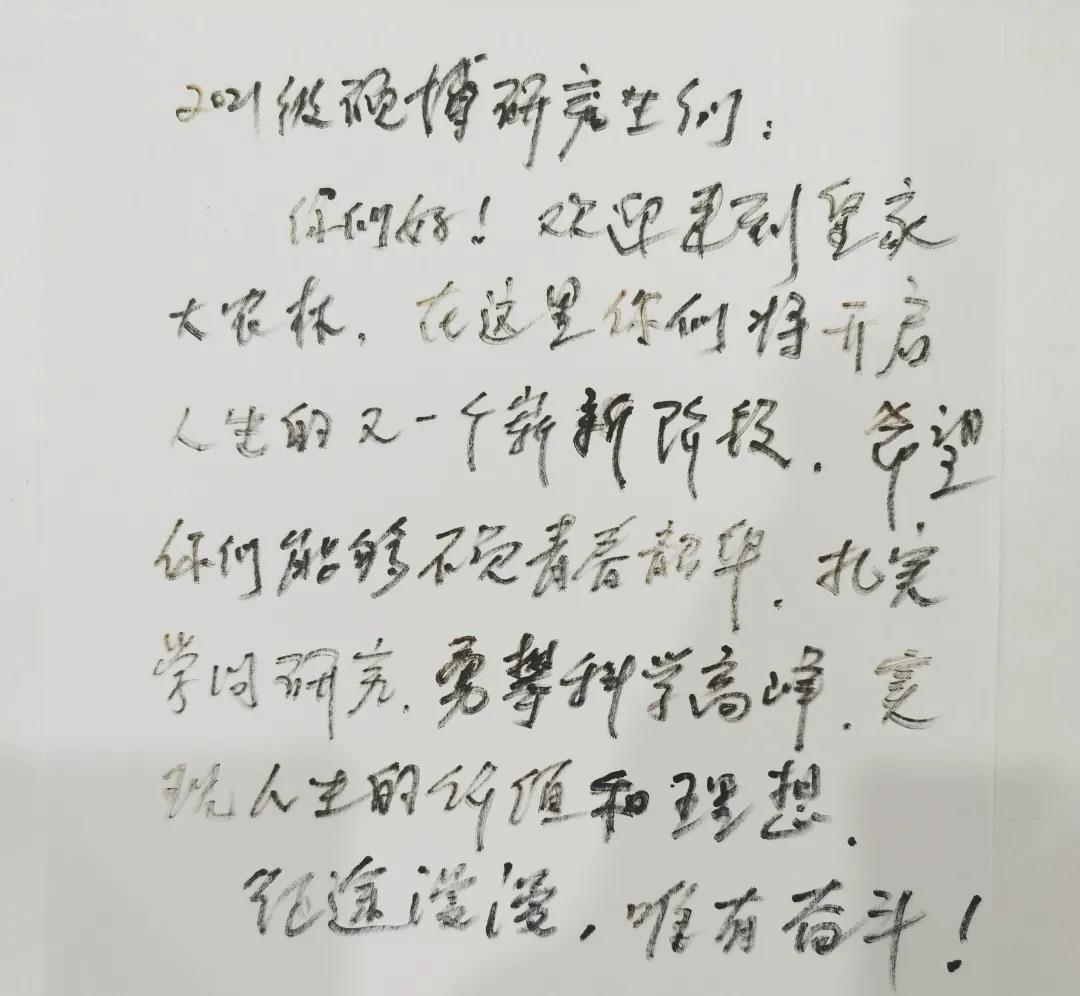 2021级硕博研究生们：
你们好！欢迎来到皇家
大农林。在这里你们将开启
人生的又一个崭新阶段。希望
你们能够不负青春韶华，扎实
学问研究，勇攀科学高峰，实
现人生的价值和理想。
征途漫漫，唯有奋斗！